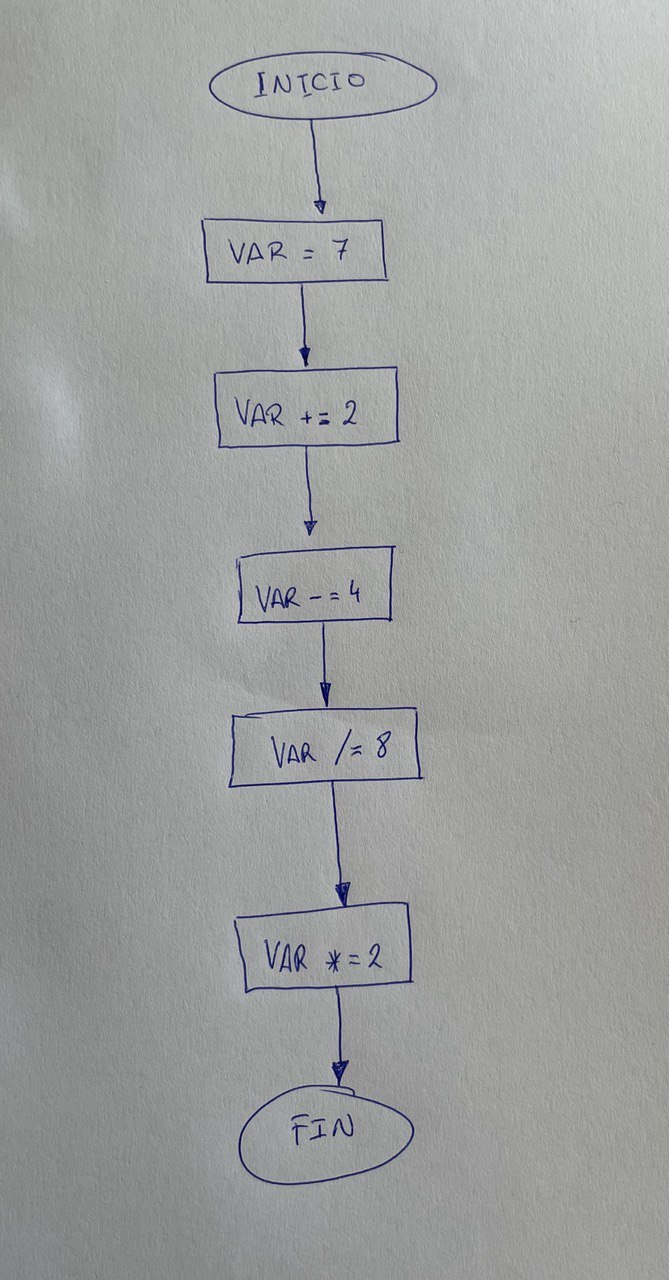 INICIO
VAR = 7
VAR += 2
VAR -= 4
VAR /= 8
VAR *= 2
FIN